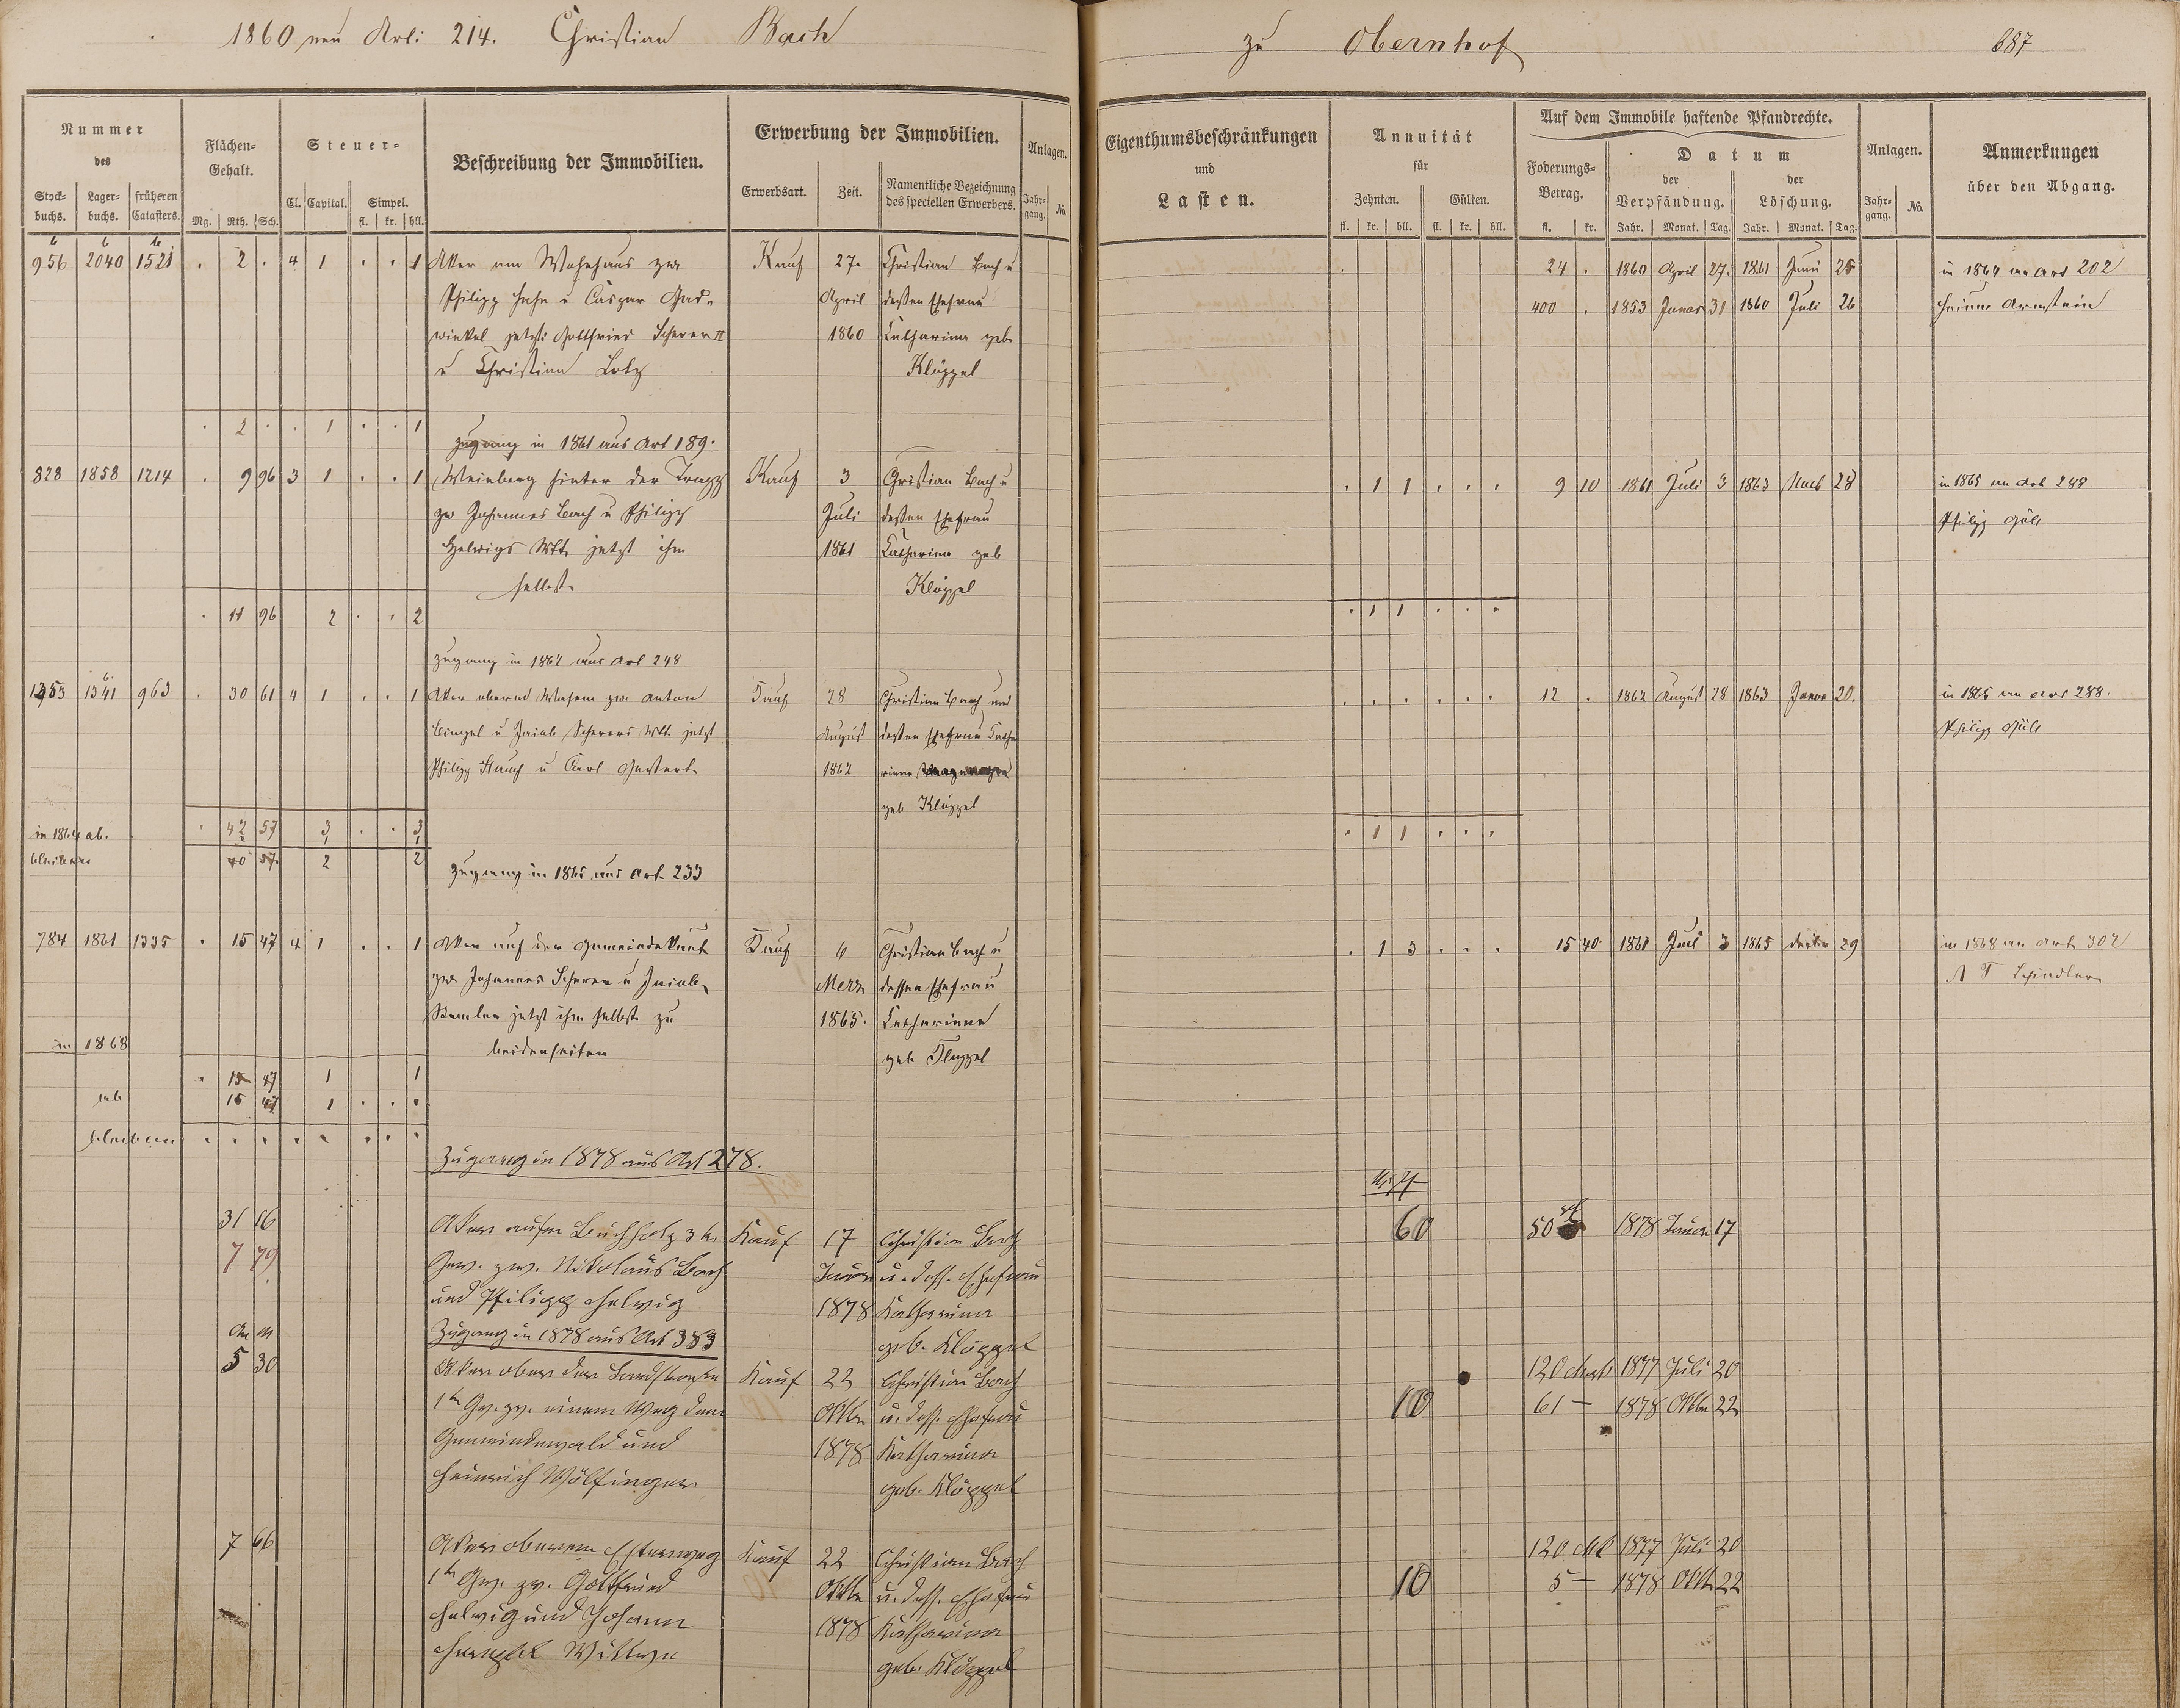 1860 neu Art: 214. Christian Bach
zu Obernhof 687
Nummer
des
Stock-
buchs.
Lager-
buchs.
früheren
Catasters.
Flächen-
Gehalt.
Mg. Rth. Sch.
Steuer-
Cl. Capital. Simpel.
fl. kr. hll.
Beschreibung der Immobilien.
Erwerbung der Immobilien.
Erwerbsart. Zeit.
Namentliche Bezeichnung
des speciellen Erwerbers.
Anlagen.
Jahr-
gang. No.
Eigenthumsbeschränkungen
und
Lasten.
Annuität
für
Zehnten. Gülten.
fl. kr. hll. fl. kr. hll.
Auf dem Immobile haftende Pfandrechte.
Foderungs-
Betrag.
fl. kr.
Datum
der
Verpfändung.
der
Löschung.
Jahr. Monat. Tag. Jahr. Monat. Tag.
Anlagen.
Jahr-
gang. No.
Anmerkungen
über den Abgang.
956 2040 1521 . 2 . 4 1 . . 1 Aker am Wohnhaus zw. Kauf 27. Christian Bach u 24 . 1860 April 27. 1861 Juni 25 in 1864 an Art 202
Philipp Hahn u Caspar April deßen Ehefrau 400 . 1853 Januar 31 1860 Juli 26 Arnstein
winkel jetzt: Gottfried Scherer II 1860 Catharina geb.
u Christian Lotz Klöppel
. 2 . . 1 . . 1
Zugang in 1861 aus Art 189.
828 1858 1214 . 9 96 3 1 . . 1 Weinberg hinter der Kauf 3 Christian Bach u . 1 1 . . . 9 10 1861 Juli 3 1863 28 in 1865 an Art 288
zw Johannes Bach u Philipp Juli deßen Ehefrau Philipp
Helwigs Wtt. jetzt ihm 1861 Catharina geb
selbst Klöppel
. 11 96 2 . . 2 . 1 1 . . .
Zugang in 1862 aus Art 248
1253 1341 963 . 30 61 4 1 . . 1 Aker oberm zw. Anton Kauf 28 Christian Bach und . . . . . . 12 . 1862 August 28 1863 Januar 20. in 1865 an Art 288.
u Jacob Scherers Wtt. jetzt August deßen Ehefrau Catha Philipp
Philipp Stauch u Carl 1862 rina
geb Klöppel
in 1864 ab. . 42 57 3 . . 3 . 1 1 . . .
2 1 1
bleiben 40 57 2 2
Zugang in 1865 aus Art. 233
784 1861 1335 . 15 47 4 1 . . 1 Aker auf der Gemeinde Kauf 6 Christian Bach u . 1 3 . . . 15 40 1861 Juli 3 1865 29 in 1868 an Art. 302
zw. Johannes Scherer u Jacob Merz dessen Ehefrau Schindler
jetzt ihm selbst zu 1865. Catharina
beidenseiten geb. Klöppel
in 1868
. 15 47 1 1
ab 15 47 1 . . .
bleiben . . . . . . . .
Zugang in 1878 aus Art 278.
31 16 Aker aufm Buchholz 3 tr Kauf 17 Christian Bach 60 50 1878 Januar 17
7 79 Gew. zw. Nikolaus Bach Januar u. dess. Ehefrau
und Philipp Helwig 1878 Katharina
Zugang in 1878 aus Art 383 geb. Klöppel
5 30 Aker ober der Landstrasse Kauf 22 Christian Bach 120 Mark 1877 Juli 20
1te Gw. zw. einem Weg dem Oktbr u. dess. Ehefrau 10 61 — 1878 Oktbr 22
Gemeindewald und 1878 Katharina
Heinrich Wölfinger geb. Klöppel
7 66 Aker oberem Kauf 22 Christian Bach 120 Mk 1877 Juli 20
1te Gw. zw. Gottfried Oktbr u. dess. Ehefrau 10 5 — 1878 Oktb 22
Helwig und Johann 1878 Katharina
Wittwe geb. Klöppel